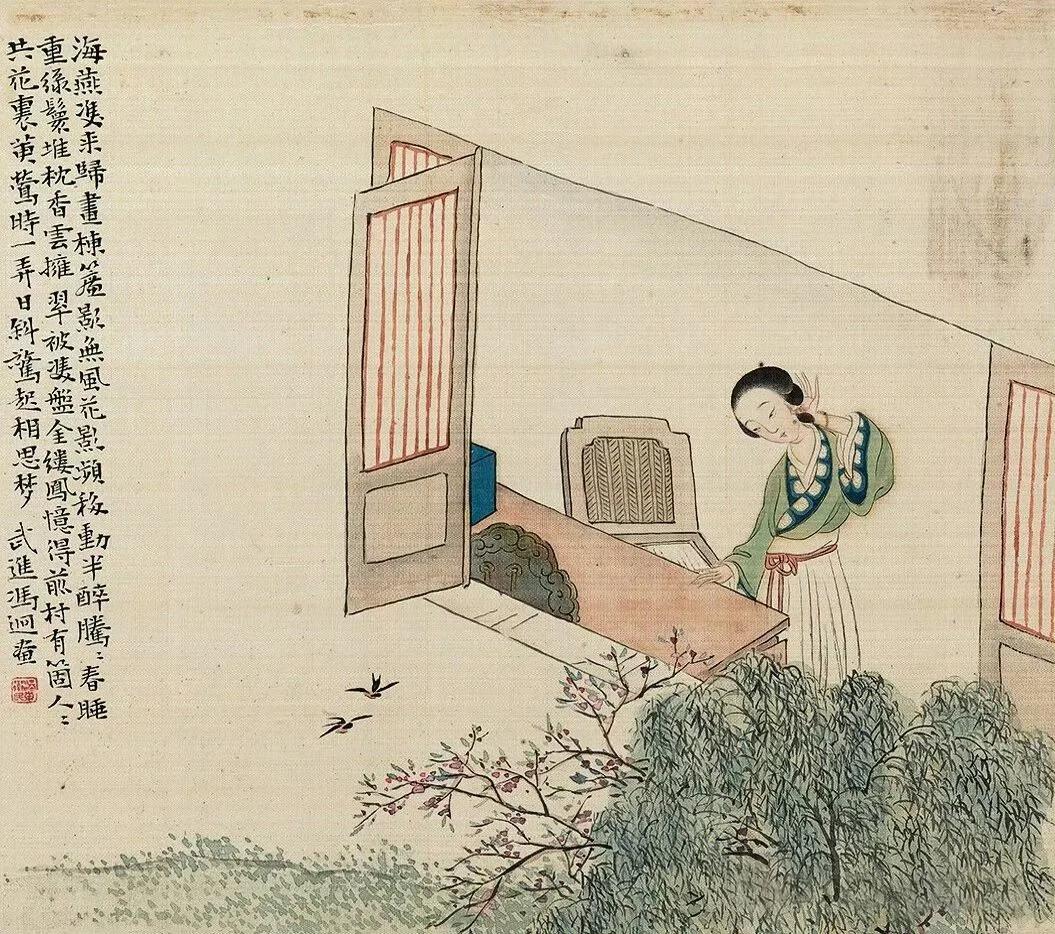 海燕雙來歸畫棟簾影無風花影頻移動半醉騰〻春睡
重綠鬟堆枕香雲擁翠被雙盤金縷鳳憶得前村有箇人〻
共花裏黃鶯時一弄日斜驚起相思梦 武進馮迥畫